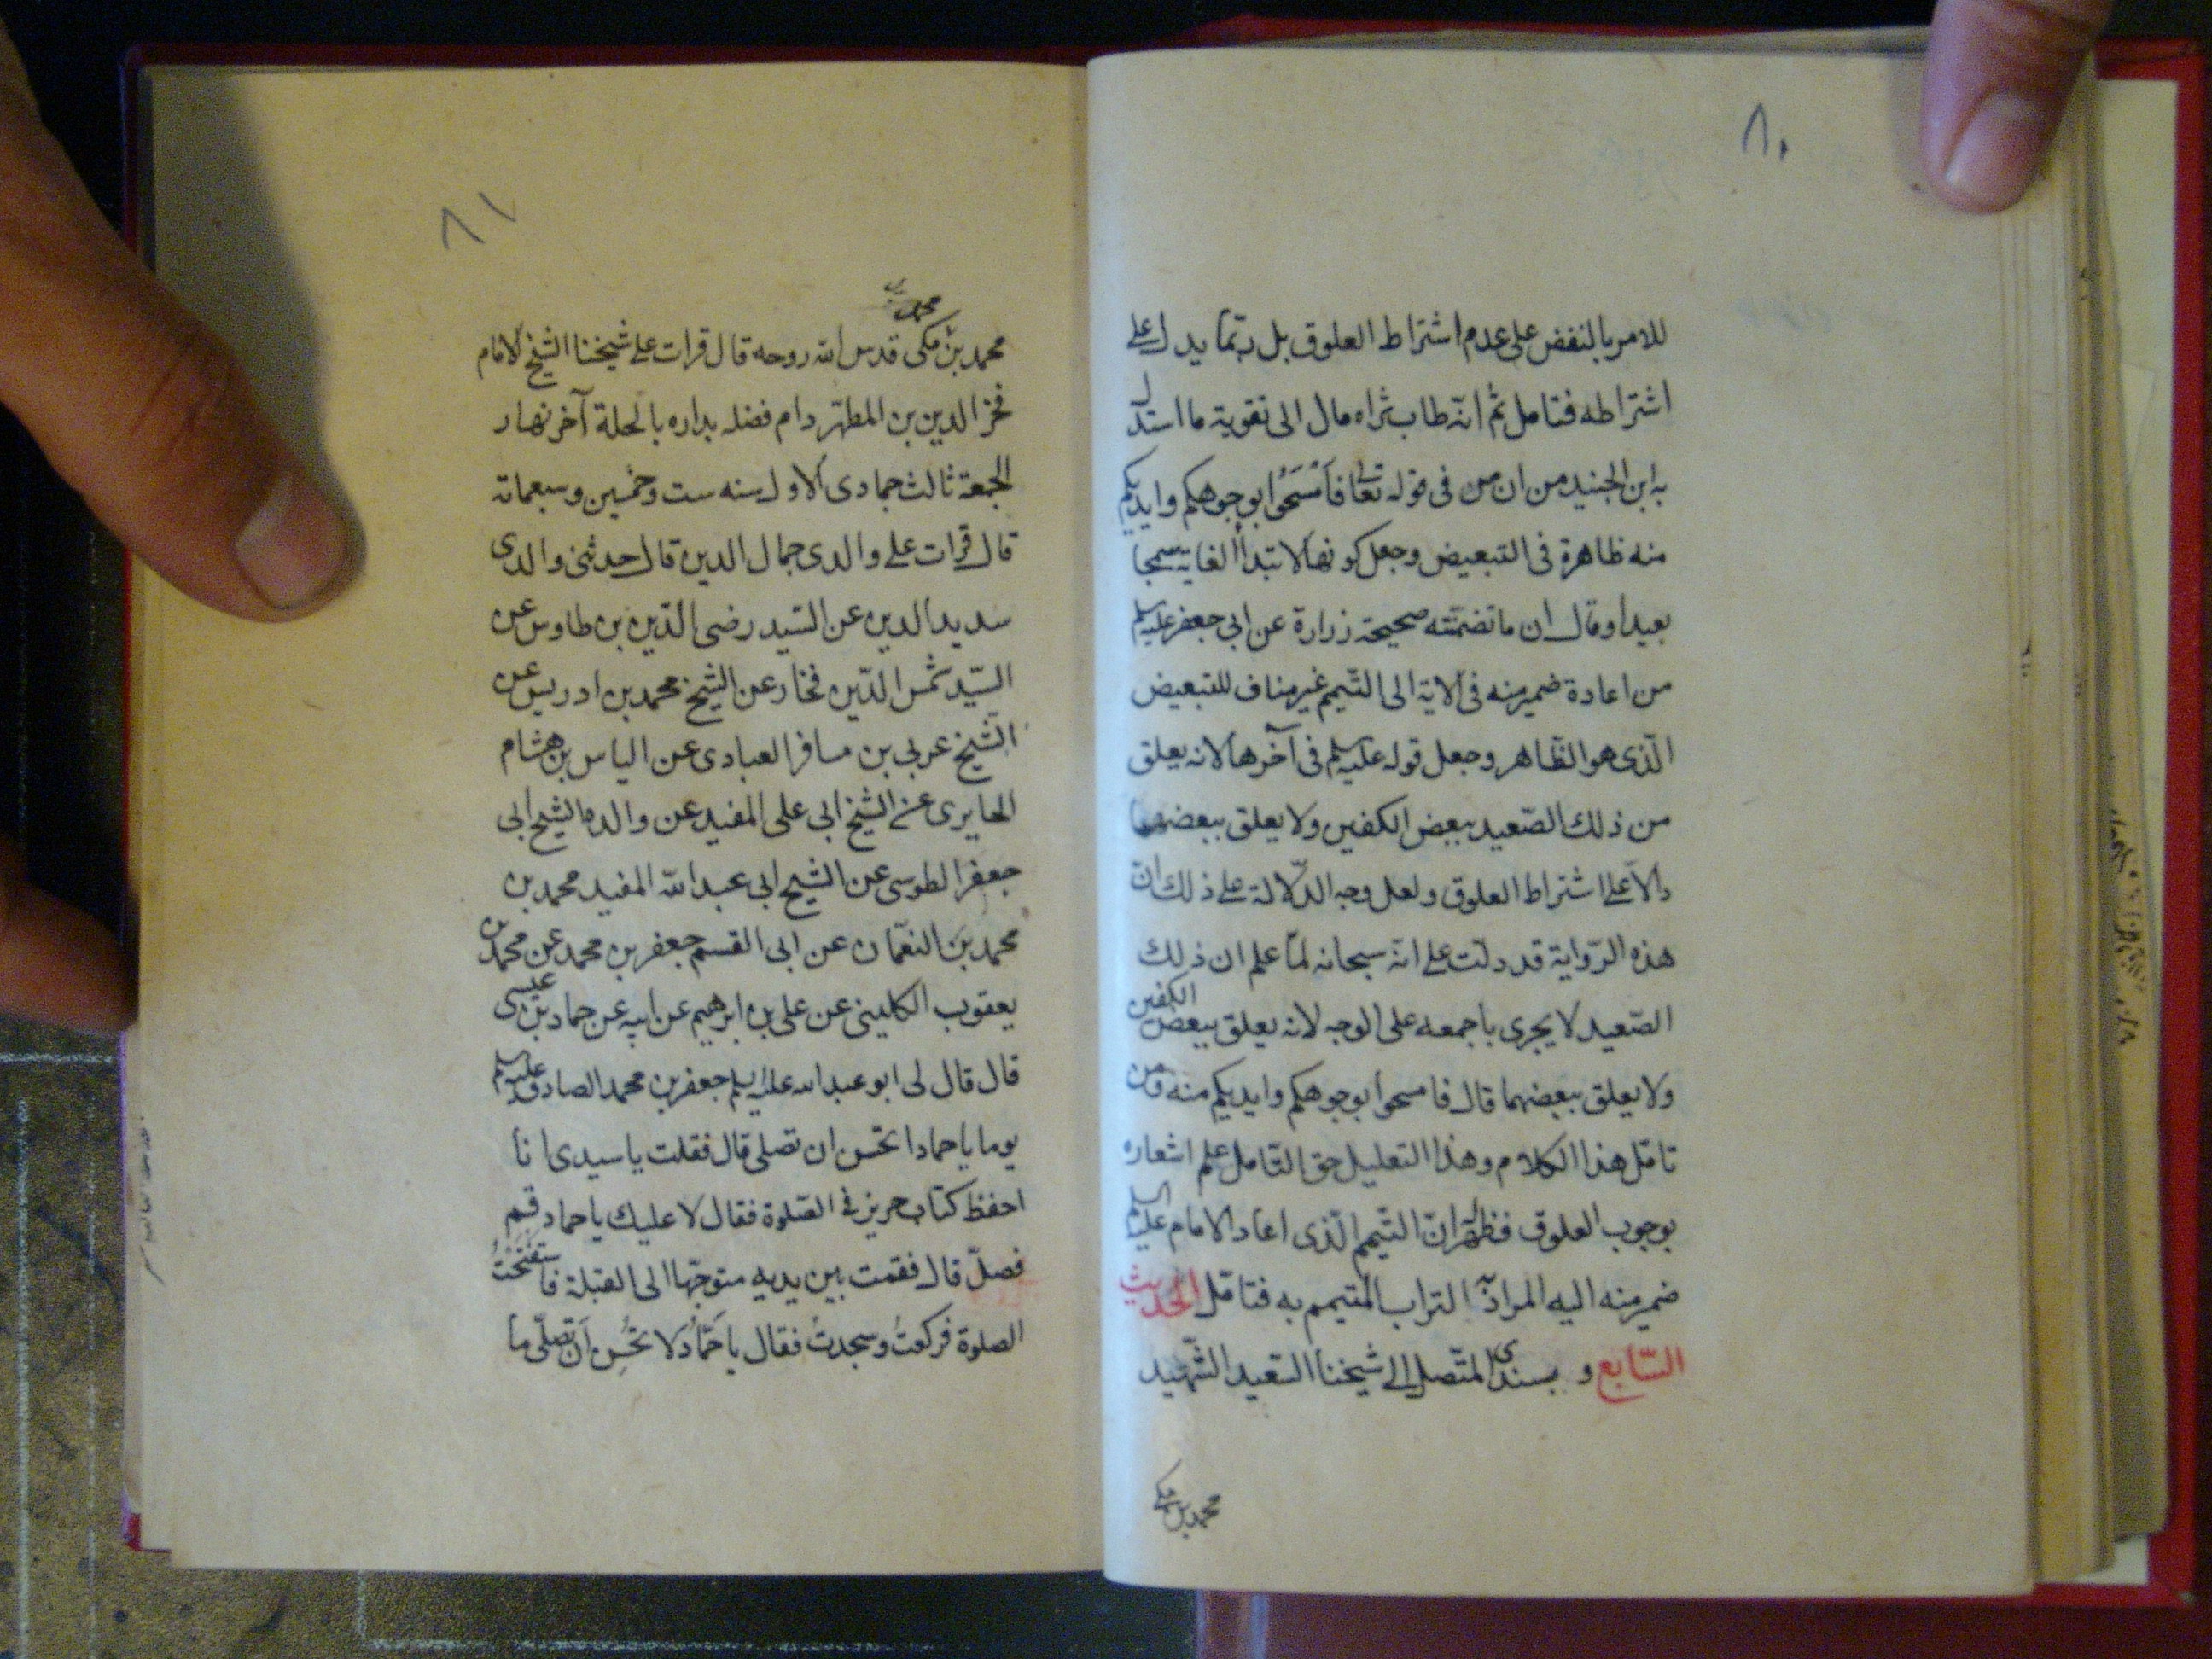 ٨٠
للامر بالنفض على عدم اشتراط العلوق بل ربّما يدل على
اشتراطه فتامل ثم انّه طاب ثراه مال الى تقوية ما استدل
به ابن الجنيد من ان من فى قوله تعا فَامْسَحُوا بوجوهكم وايديكم
منه ظاهرة فى التبعيض وجعل كونها لابتداأ الغاية سمجا
بعيدا وقال ان ما تضمنّته صحيحة زرارة عن ابى جعفر عليه سلم
من اعادة ضمير منه فى الاية الى التّيمم غير مناف للتبعيض
الّذى هو الظّاهر وجعل قوله عليه سلم فى آخرها لانه يعلق
من ذلك الصّعيد ببعض الكفين ولا يعلق ببعضها
دالاً على اشتراط العلوق ولعل وجه الدّلالة على ذلك انّ
هذه الرّواية قد دلّت على انّه سبحانه لمّا علم ان ذلك
الصّعيد لا يجرى باجمعه على الوجه لانه يعلق ببعض الكفين
ولا يعلق ببعضهما قال فامسحوا بوجوهكم وايديكم منه فمن
تامّل هذا الكلام وهذا التعليل حق التّامل علم اشعاره
بوجوب العلوق فظهر انّ التّيمم الّذى اعاد الامام عليه السلم
ضمير منه اليه المراد التراب المتيمم به فتامّل الحديث
السّابع وبسندى المتّصل الى شيخنا السّعيد الشّهيد
محمد بن مكى
٨١
محمد بن مكى قدس الله روحه قال قرات على شيخنا الشيخ الامام
فخر الدين بن المطهّر دام فضله بداره بالحلة آخر نهار
الجمعة ثالث جمادى الاول سنه ست وخمسين وسبعمائة
قال قرات على والدى جمال الدين قال حدثنى والدى
سديد الدين عن السّيد رضى الدّين بن طاوس عن
السيّد شمس الدّين فخار عن الشيخ محمد بن ادريس عن
الشّيخ عربى بن مسافر العبادى عن الياس بن هشام
الحايرى عن الشيخ ابى على المفيد عن والده الشيخ ابى
جعفر الطوسى عن الشيخ ابى عبد الله المفيد محمد بن
محمد بن النعمان عن ابى القسم جعفر بن محمد عن محمد بن
يعقوب الكلينى عن على بن ابرهيم عن ابيه عن حماد بن عيسى
قال قال لى ابو عبد الله عليه السلم جعفر بن محمد الصادق عليه سلم
يوما يا حماد اتحسن ان تصلى قال فقلت يا سيدى انا
احفظ كتاب حريز فى الصّلوة فقال لا عليك يا حماد قم
فصلّ قال فقمت بين يديه متوجّها الى القبلة فاستفتحتُ
الصلوة فركعتُ وسجدتُ فقال يا حَمّادُ لا تحُسِن اَن تصلّى ما